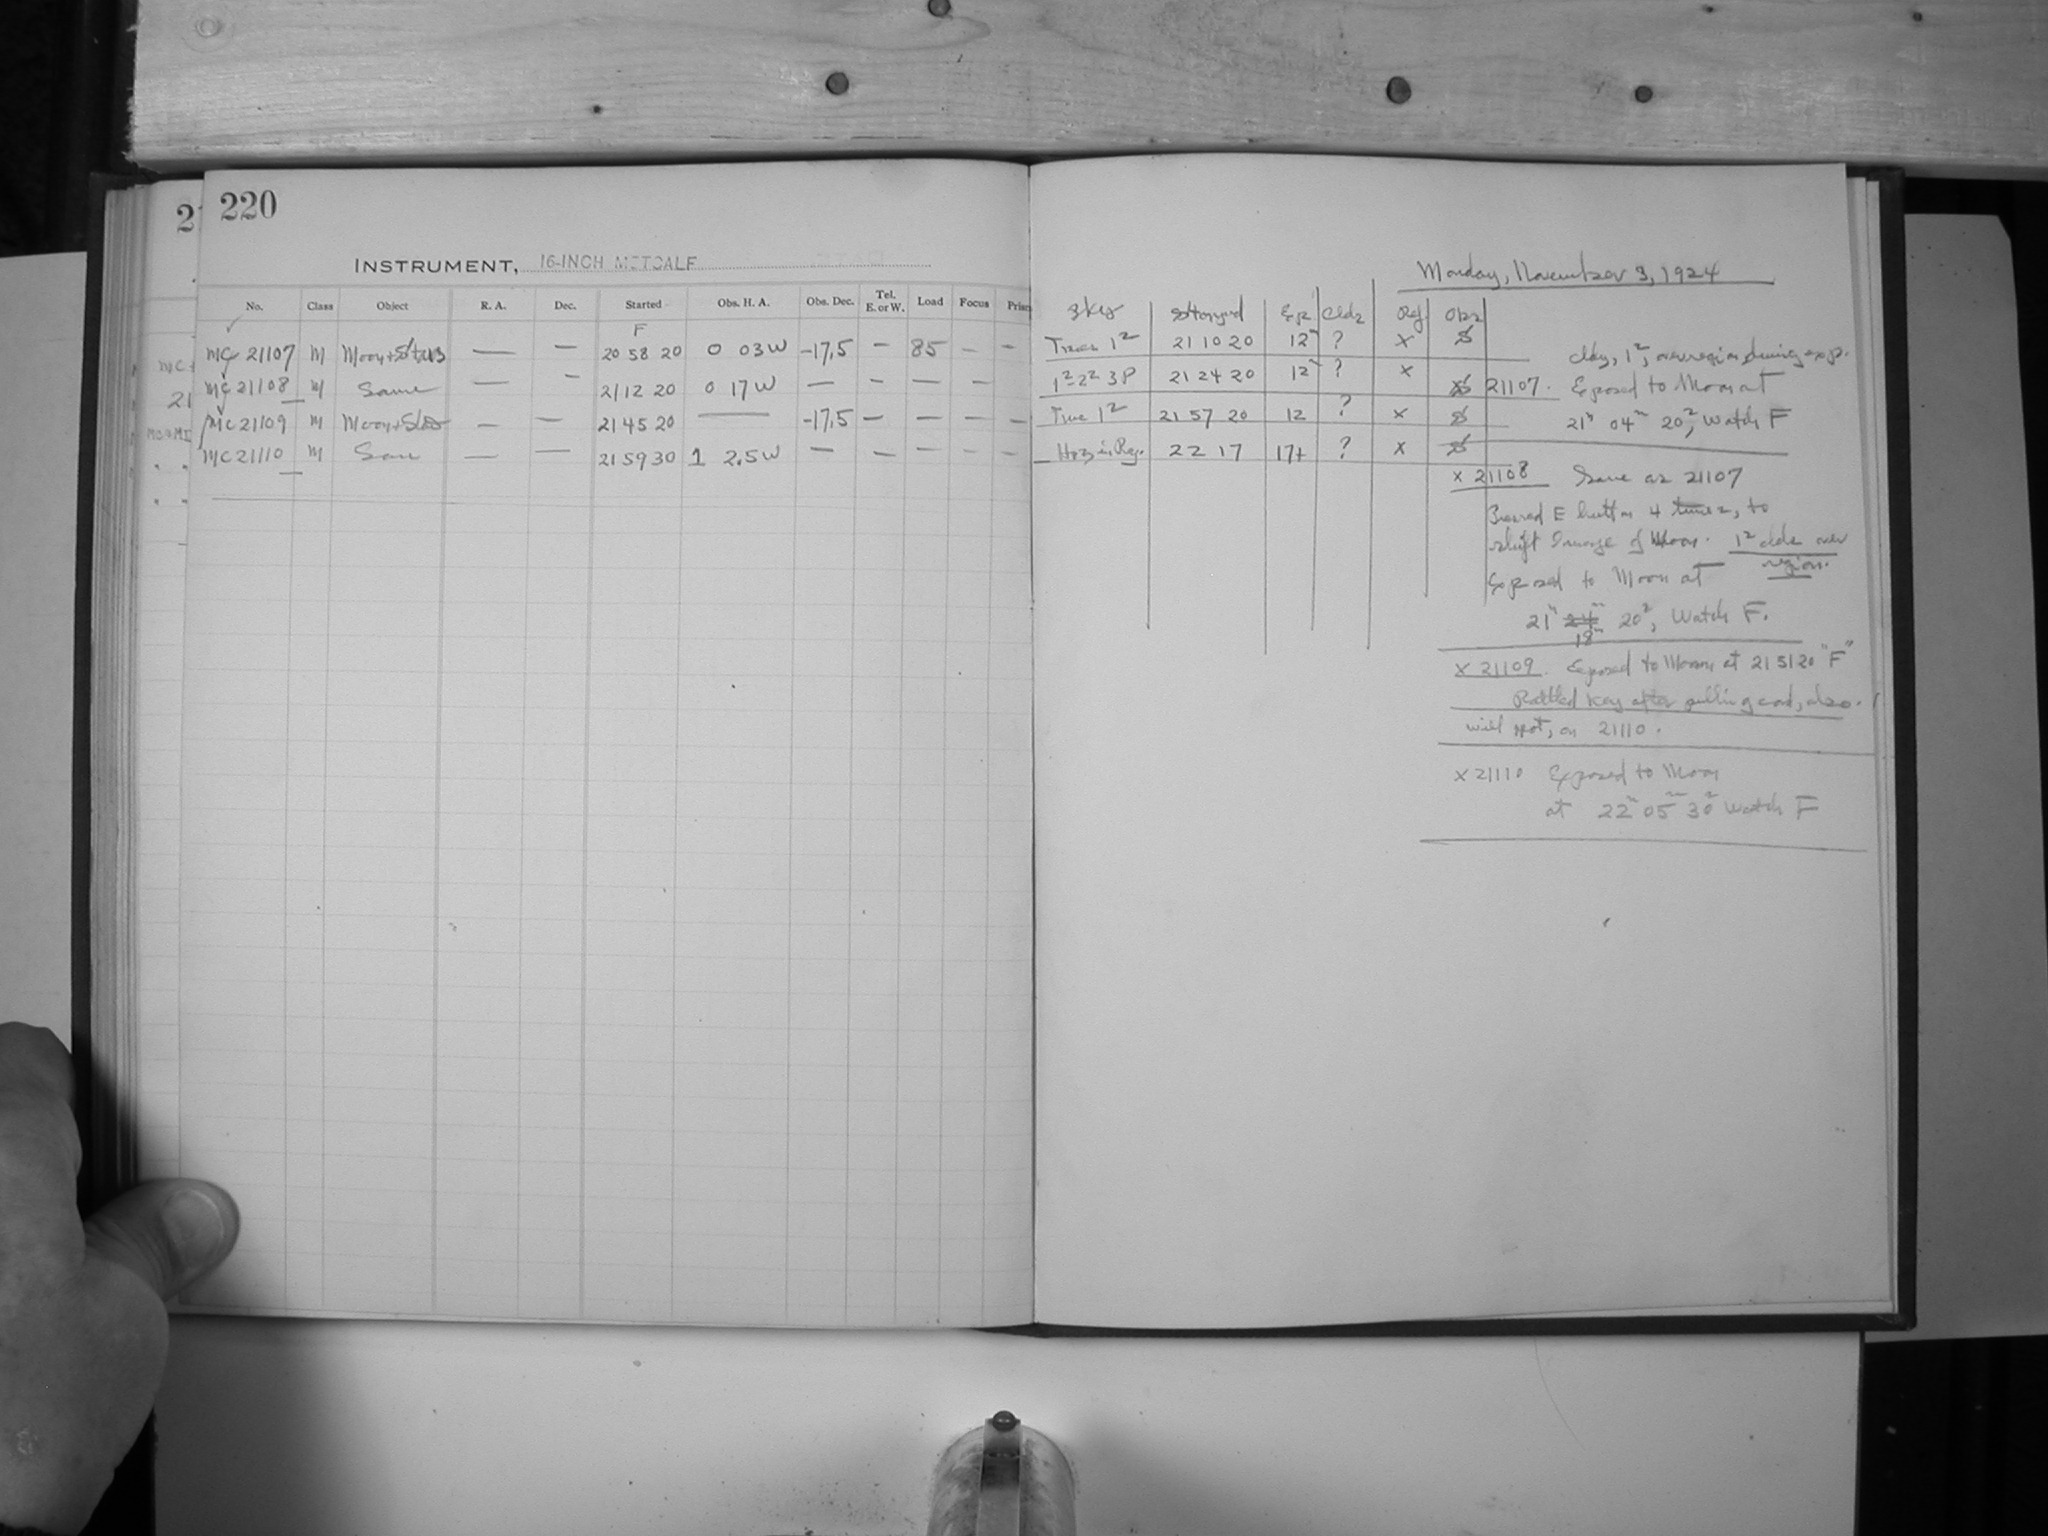 2
220
INSTRUMENT, 16-INCH METCALF
No. Class Object R. A. Dec. Started Obs. H. A. Obs. Dec. Tel. E. or W. Load Focus Prism
F
MC 21107 M Moon+Stars — — 20 58 20 0 03 W -17.5 — 85 — —
MC 21108 M Same — — 21 12 20 0 17 W — — — — —
MC 21109 M Moon+Stars — — 21 45 20 — -17.5 — — — —
MC 21110 M Same — — 21 59 30 1 2.5 W — — — — —
MC
21
Monday, November 3, 1924
Sky Stopped Exp Clds Reg Obs
1² 21 10 20 12ᵐ ? X
1²-2² 3P 21 24 20 12 ? X
1² 21 57 20 12 ? X
22 17 17+ ? X
cldy, 1², over region during exp.
X 21107. Exposed to Moon at
21ʰ 04ᵐ 20ˢ, Watch F
X 21108 Same as 21107
Pressed E button 4 times, to
shift Image of Moon. 1² clds over
region.
Exposed to Moon at
21ʰ 24ᵐ 20ˢ, Watch F.
18ᵐ
X 21109. Exposed to Moon at 21 51 20 "F"
Rattled Key after pulling cord, also
on 21110.
X 21110 Exposed to Moon
at 22ʰ 05ᵐ 30ˢ Watch F